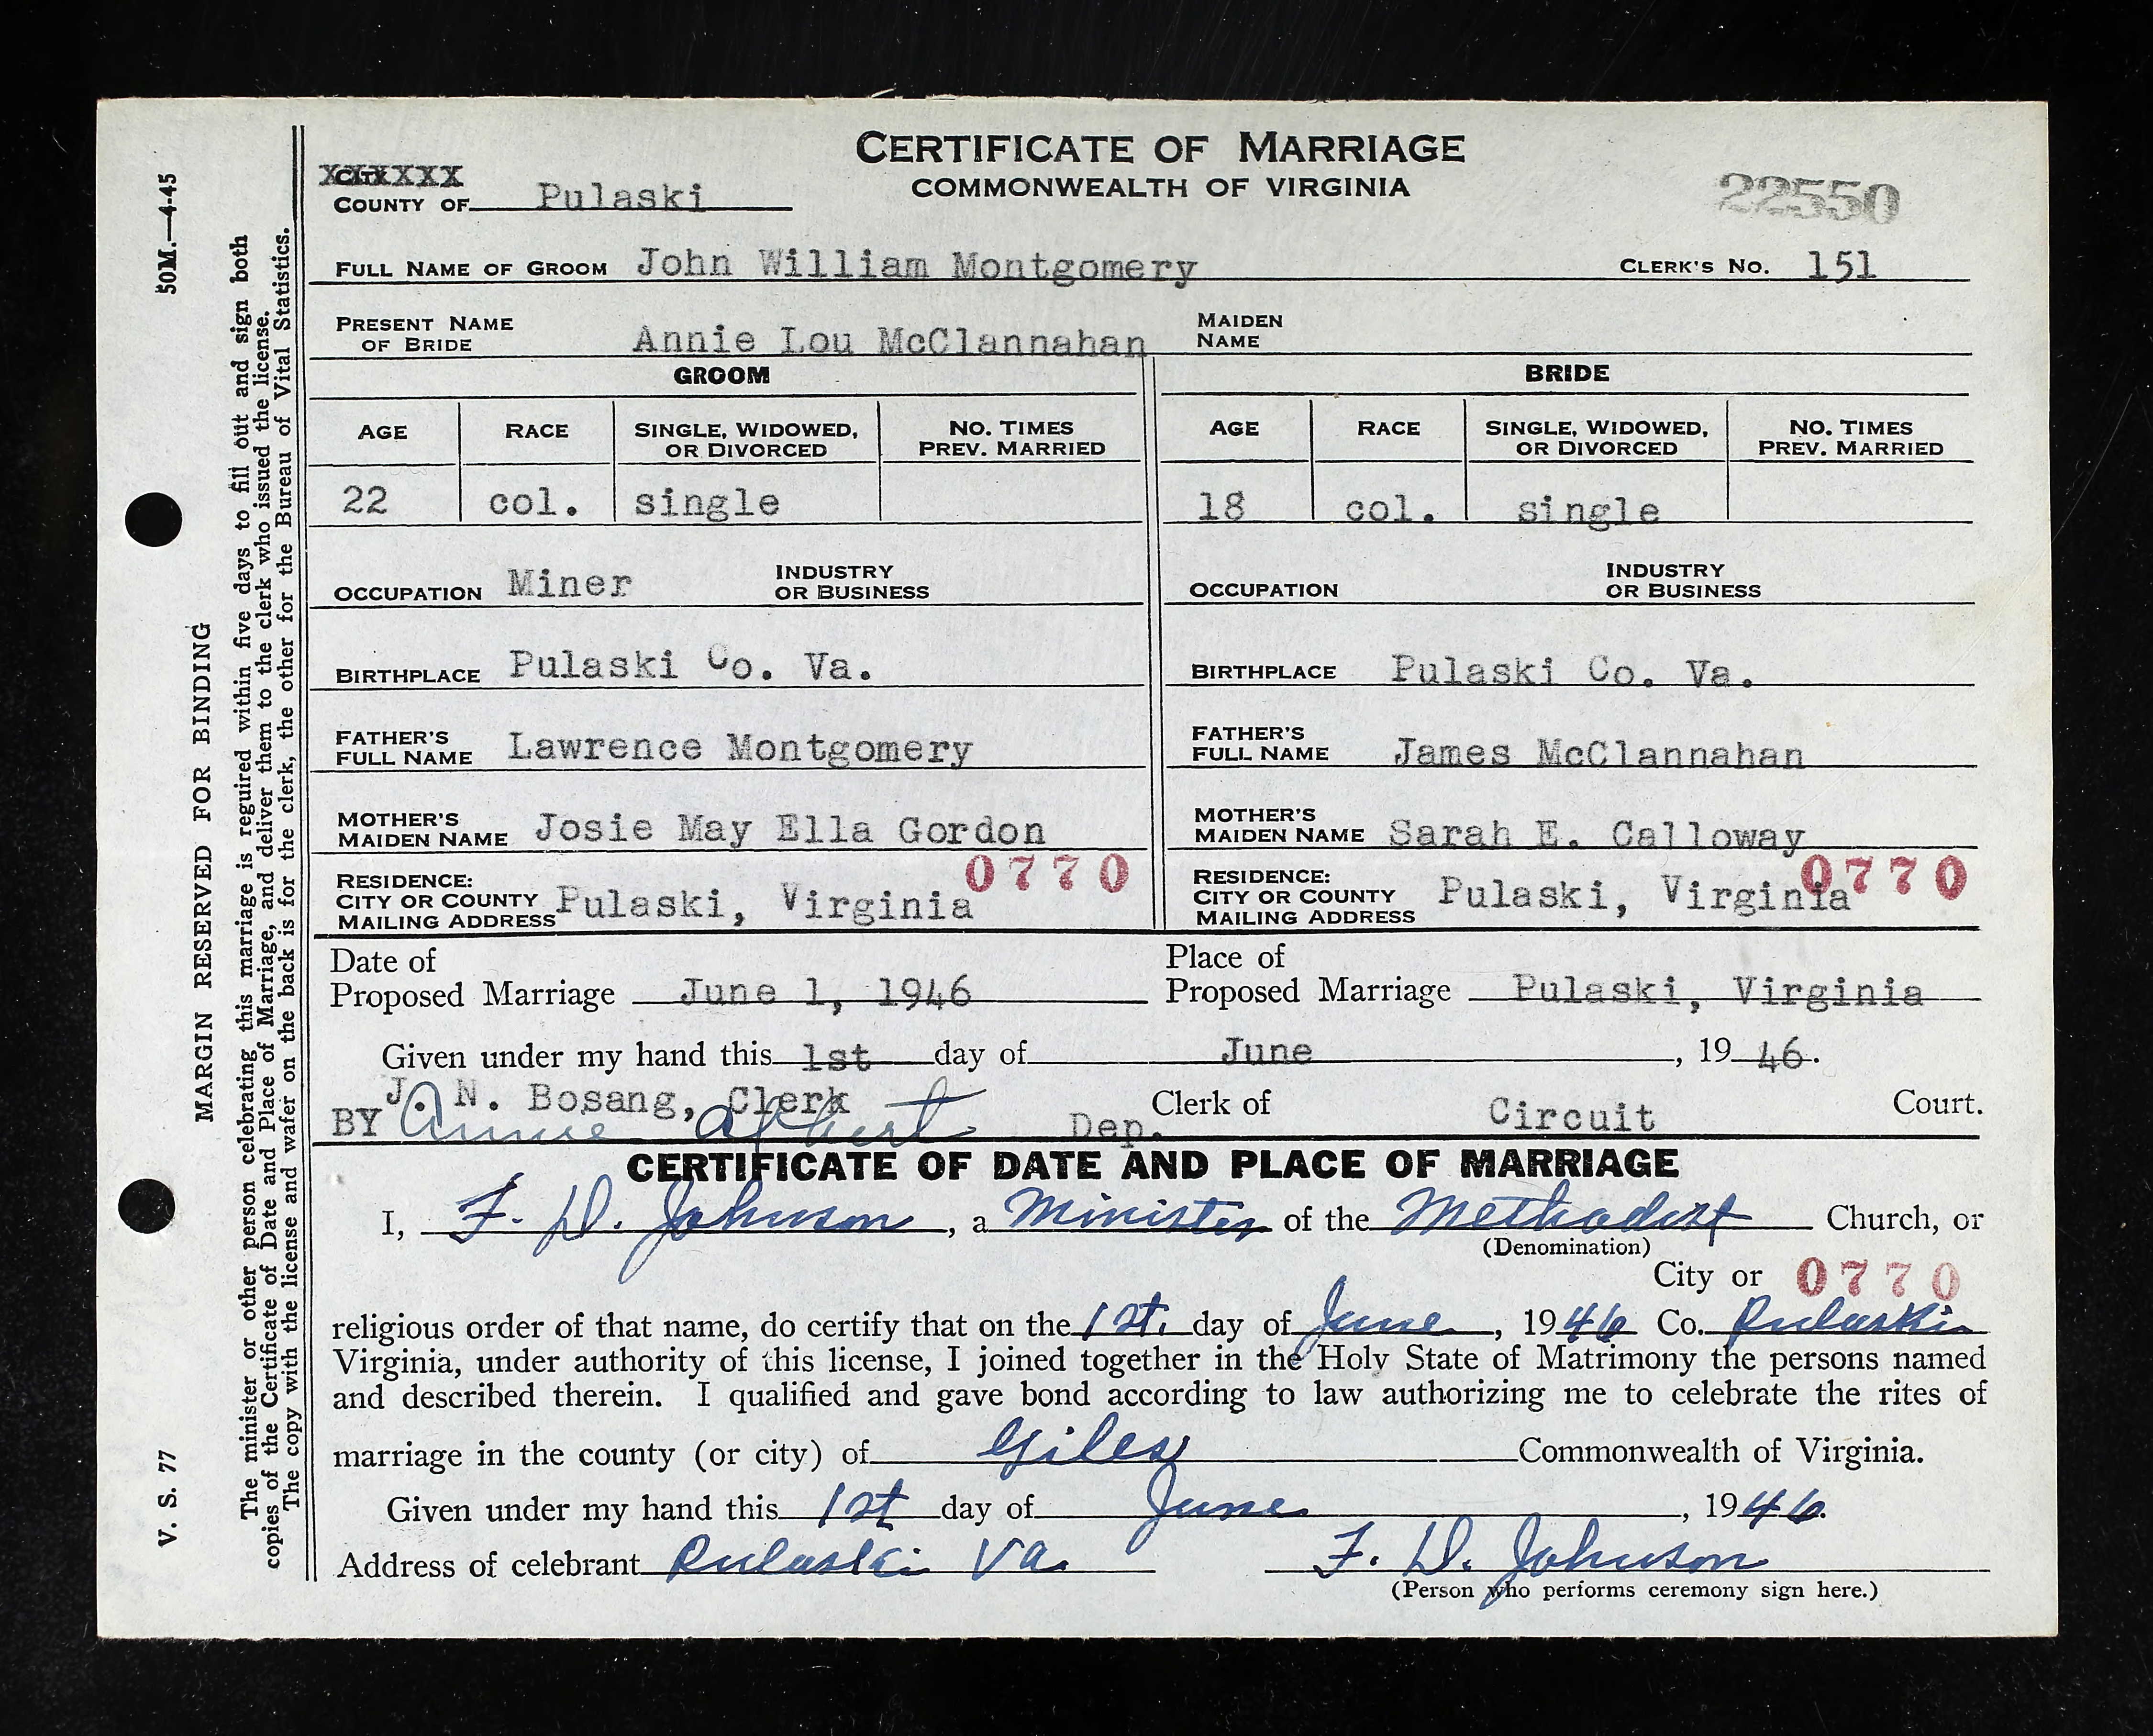 CERTIFICATE OF MARRIAGE
COMMONWEALTH OF VIRGINIA
22550
XXXXXX
COUNTY OF Pulaski
FULL NAME OF GROOM John William Montgomery CLERK'S NO. 151
PRESENT NAME OF BRIDE Annie Lou McClannahan MAIDEN NAME
GROOM BRIDE
AGE RACE SINGLE, WIDOWED, OR DIVORCED NO. TIMES PREV. MARRIED AGE RACE SINGLE, WIDOWED, OR DIVORCED NO. TIMES PREV. MARRIED
22 col. single 18 col. single
OCCUPATION Miner INDUSTRY OR BUSINESS OCCUPATION INDUSTRY OR BUSINESS
BIRTHPLACE Pulaski Co. Va. BIRTHPLACE Pulaski Co. Va.
FATHER'S FULL NAME Lawrence Montgomery FATHER'S FULL NAME James McClannahan
MOTHER'S MAIDEN NAME Josie May Ella Gordon MOTHER'S MAIDEN NAME Sarah E. Calloway
0770 0770
RESIDENCE: CITY OR COUNTY MAILING ADDRESS Pulaski, Virginia RESIDENCE: CITY OR COUNTY MAILING ADDRESS Pulaski, Virginia
Date of Proposed Marriage June 1, 1946 Place of Proposed Marriage Pulaski, Virginia
Given under my hand this 1st day of June, 19 46.
J. N. Bosang, Clerk Clerk of Circuit Court.
BY Annie Albert Dep.
CERTIFICATE OF DATE AND PLACE OF MARRIAGE
I, F. D. Johnson, a Minister of the Methodist Church, or
(Denomination)
City or 0770
religious order of that name, do certify that on the 1st. day of June, 1946 Co. Pulaski
Virginia, under authority of this license, I joined together in the Holy State of Matrimony the persons named
and described therein. I qualified and gave bond according to law authorizing me to celebrate the rites of
marriage in the county (or city) of Giles Commonwealth of Virginia.
Given under my hand this 1st day of June, 1946.
Address of celebrant Pulaski Va. F. D. Johnson
(Person who performs ceremony sign here.)
50M.—4-45
V. S. 77
MARGIN RESERVED FOR BINDING
The minister or other person celebrating this marriage is reguired within five days to fill out and sign both
copies of the Certificate of Date and Place of Marriage, and deliver them to the clerk who issued the license.
The copy with the license and wafer on the back is for the clerk, the other for the Bureau of Vital Statistics.